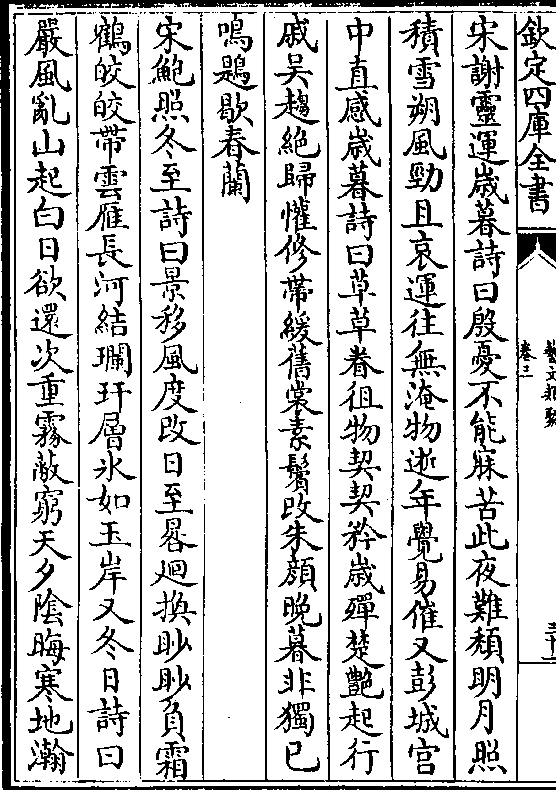 欽定四庫全書
藝文類聚
卷三
三十二
宋謝靈運歲暮詩曰殷憂不能寐苦此夜難頽明月照
積雪朔風勁且哀運往無淹物逝年覺易催又彭城宮
中直感歲暮詩曰草草眷徂物契契矜歲殫楚艷起行
戚吳趨絶歸懽修帶緩舊裳素鬢改朱顔晚暮非獨已
鳴鶗歇春蘭
宋鮑照冬至詩曰景移風度改日至晷廻換眇眇負霜
鶴皎皎帶雲雁長河結瓓玕層氷如玉岸又冬日詩曰
嚴風亂山起白日欲還次重霧蔽窮天夕陰晦寒地瀚